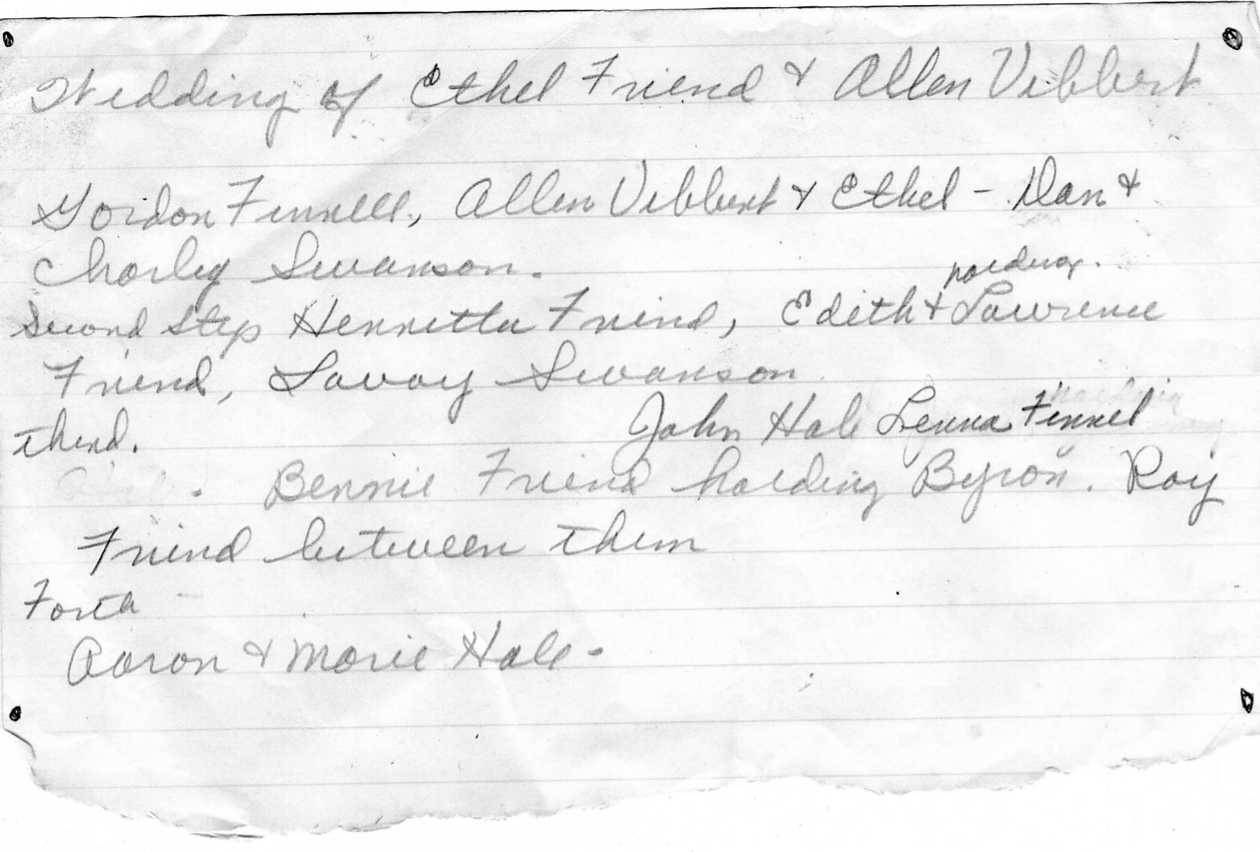 Wedding of Ethel Friend & Allen Vibbert
Gordon Finnell, Allen Vibbert & Ethel - Dan &
Charley Swanson.
holding.
Second Step Henrietta Friend, Edith & Lawrence
Friend, Savoy Swanson
third. John Hale Lenna Finnel
. Bennie Friend holding Byron. Roy
Friend between them
Forth
Aaron & Marie Hale -